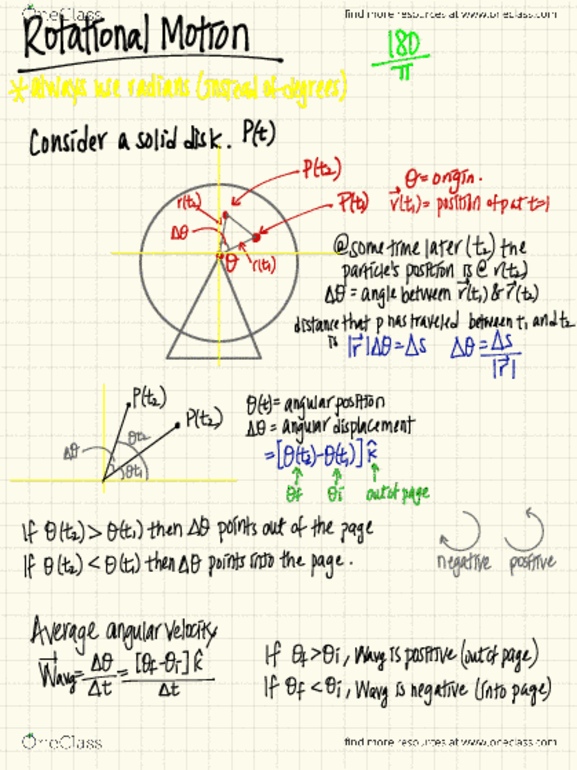 OneClass
find more resources at www.oneclass.com
Rotational Motion
180
π
* always use radians (instead of degrees)
Consider a solid disk. P(t)
P(t₂)
r(t₂)
P(t₁)
Δθ
θ
r(t₁)
θ = origin.
r⃗(t₁) = position of p at t=1
@ some time later (t₂) the
particle's position is @ r(t₂)
Δθ = angle between r⃗(t₁) & r⃗(t₂)
distance that p has traveled between t₁ and t₂
is |r⃗|Δθ = Δs Δθ = Δs
|r⃗|
P(t₂)
P(t₂)
Δθ
θt₂
θt₁
θ(t) = angular position
Δθ = angular displacement
= [θ(t₂) - θ(t₁)] k̂
θf θi out of page
If θ(t₂) > θ(t₁) then Δθ points out of the page
If θ(t₂) < θ(t₁) then Δθ points into the page.
negative positive
Average angular velocity
W⃗avg = Δθ = [θf - θi] k̂
Δt Δt
If θf > θi, Wavg is positive (out of page)
If θf < θi, Wavg is negative (into page)
OneClass
find more resources at www.oneclass.com